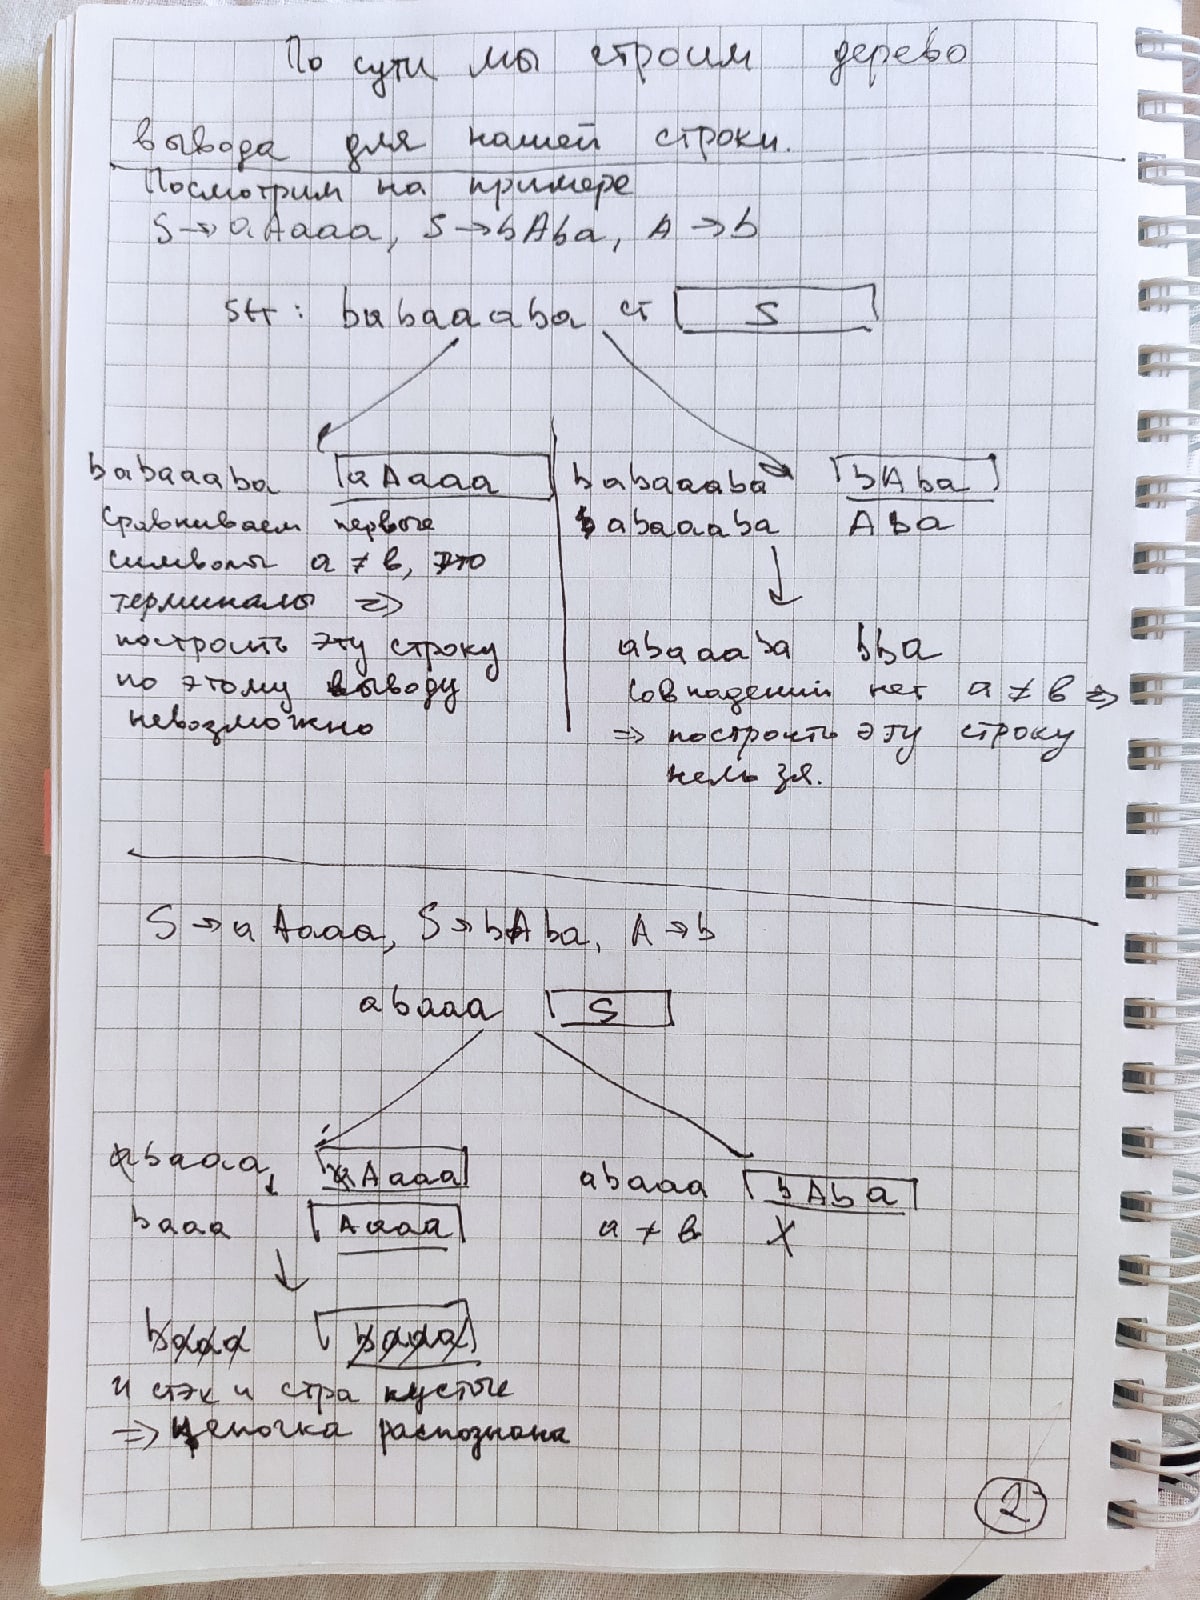 По сути мы строим дерево
вывода для нашей строки.
Посмотрим на примере
S → aAaaa, S → bAba, A → b
str: babaaaba ст S
babaaaba aAaaa
Сравниваем первые
символы a ≠ b, это
терминалы ⇒
построить эту строку
по этому выводу
невозможно
babaaaba bAba
babaaaba Aba
abaaaba bba
Совпадений нет a ≠ b ⇒
⇒ построить эту строку
нельзя.
S → aAaaa, S → bAba, A → b
abaaa S
abaaa aAaaa
baaa Aaaa
baaa baaa
и стэк и стра пустые
⇒ цепочка распознана
abaaa bAba
a ≠ b X
2